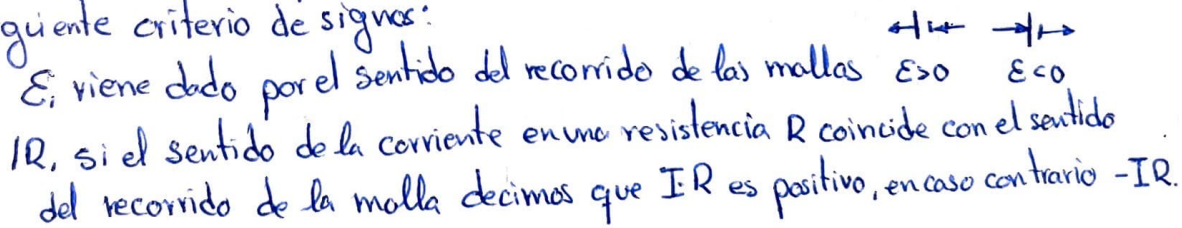 guiente criterio de signos:
Ɛi viene dado por el sentido del recorrido de las mallas Ɛ>0 Ɛ<0
IR, si el sentido de la corriente en una resistencia R coincide con el sentido
del recorrido de la malla decimos que I·R es positivo, en caso contrario -IR.